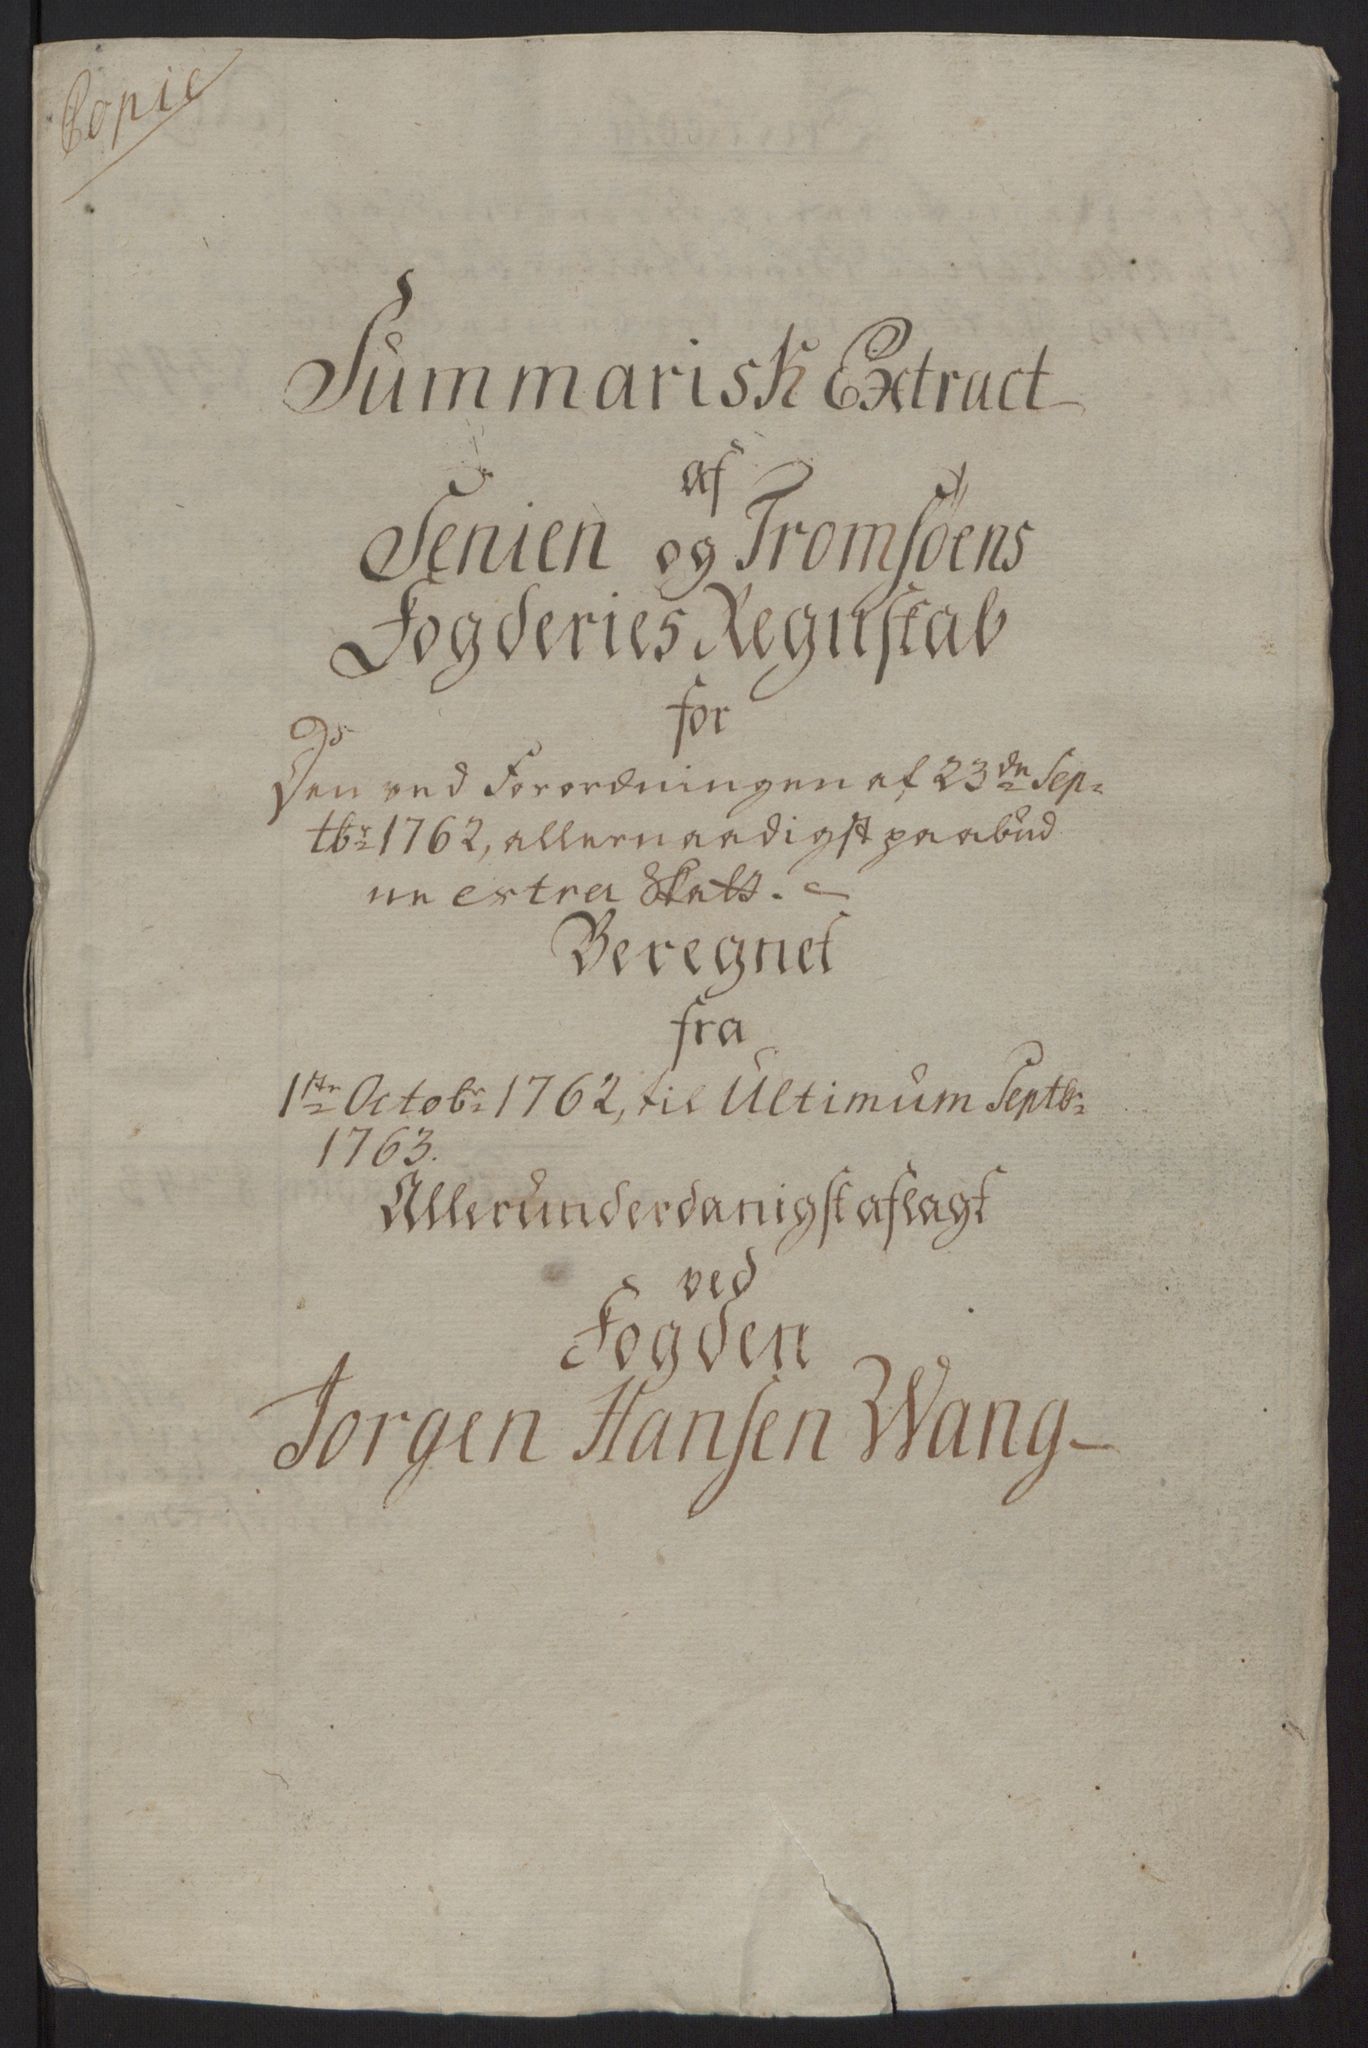 Copie
Summarisk Extract
af
Senien og Tromsöens
Fogderies Regnskab
for
Den ved Forordningen af 23de Sep-
tbr 1762, allernaadigst paabud
ne extra Skatt.
Beregnet
fra
1ste Octobr 1762, til Ultimum Septbr
1763.
Allerunderdanigst aflagt
ved
Fogden
Jorgen Hansen Wang